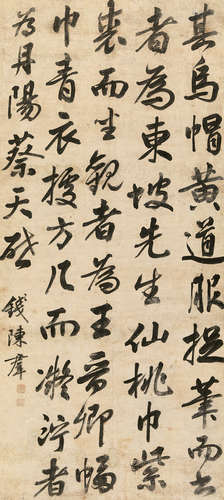 其烏帽黃道服捉筆而書
者為東坡先生仙桃巾紫
裘而坐觀者為王晉卿幅
巾青衣據方几而凝竚者
為丹陽蔡天啟
錢陳羣